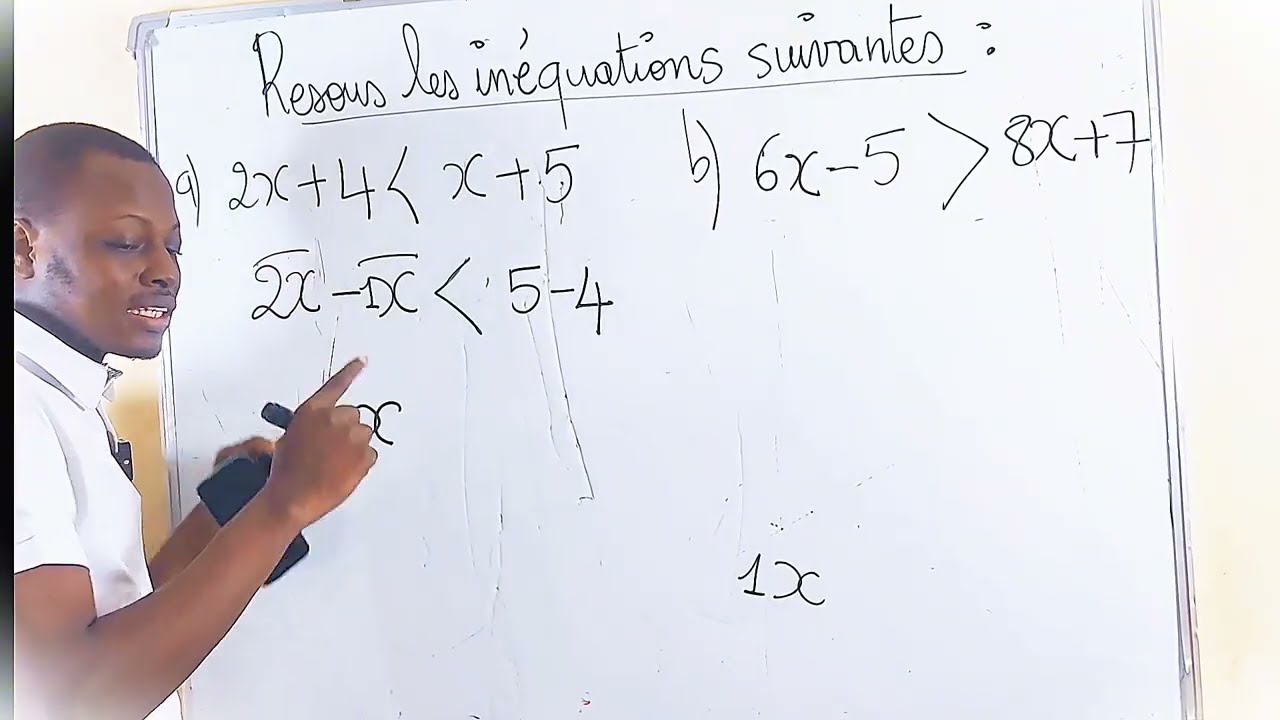 Resous les inéquations suivantes :
a) 2x+4 < x+5
b) 6x-5 > 8x+7
2x -1x < 5-4
x
1x